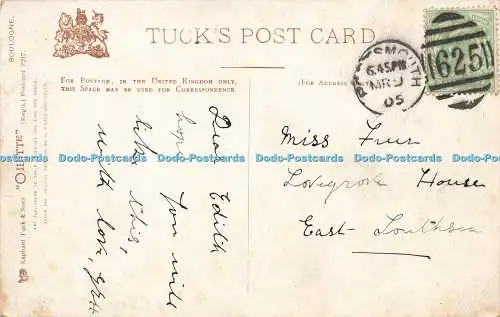 BOULOGNE.
TUCK'S POST CARD
FOR POSTAGE, IN THE UNITED KINGDOM ONLY,
THIS SPACE MAY BE USED FOR CORRESPONDENCE.
(FOR ADDRESS
Raphael Tuck & Sons' "OILETTE" [Regd.] Postcard 7217.
PORTSMOUTH
6.45PM
MR 9
05
625
Dear Edith
hope you will
like this,
with love,
Miss
House
East Southsea
Dodo-Postcards Dodo-Postcards Dodo-Postcards Dodo-Postcards Dodo-Postcards